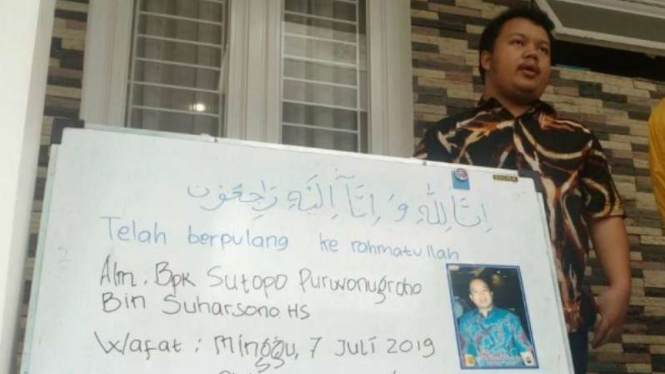 إنا لله و إنا إليه راجعون
Telah berpulang ke rahmatullah
Alm. Bpk Sutopo Purwonugroho
Bin Suharsono HS
Wafat : Minggu, 7 Juli 2019